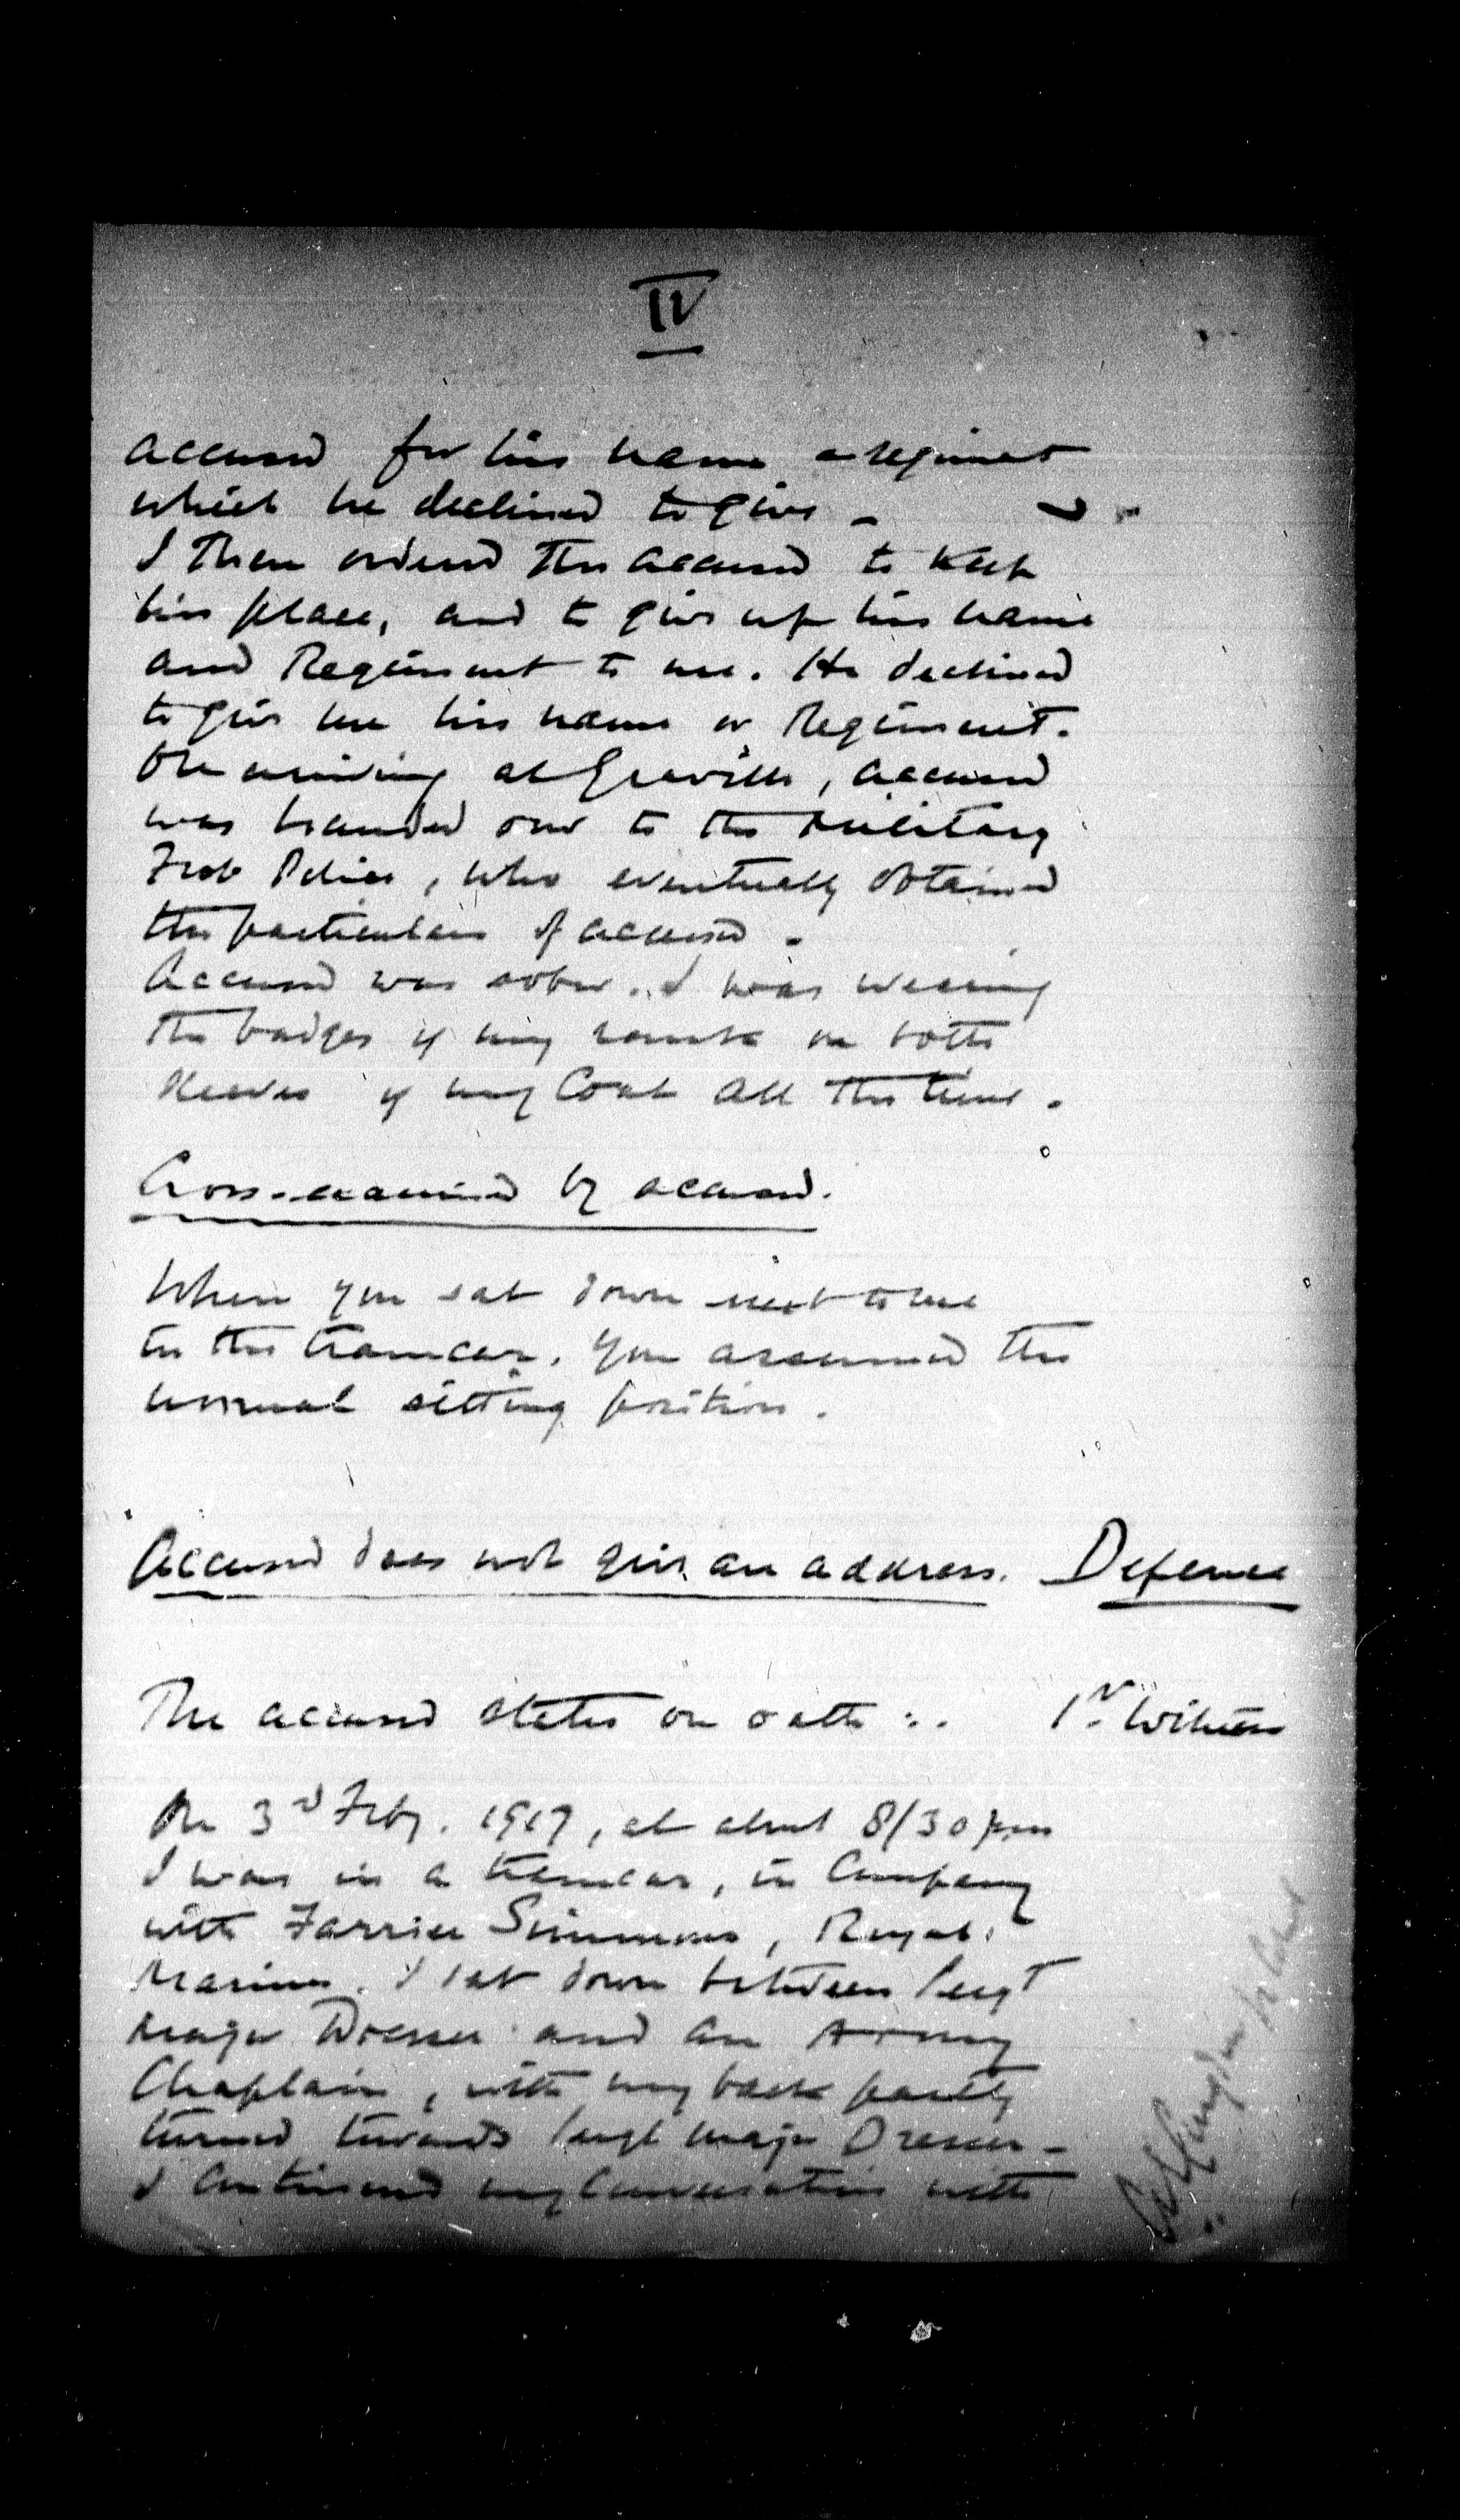 IV
accused for his name & regiment
which he declined to give -
I then ordered the accused to keep
his place, and to give up his name
and Regiment to me. He declined
to give me his name or Regiment.
On arriving at Graville, accused
was handed over to the Military
Foot Police, who eventually obtained
the particulars of accused -
Accused was sober. I was wearing
the badges of my rank on both
sleeves of my Coat all the time.
Cross-examined by accused.
When you sat down next to me
in the tramcar, you assumed the
normal sitting position.
Accused does not give an address. Defence
The accused states on oath :. 1st Witness
On 3rd Feby. 1917, at about 8/30 pm
I was in a tramcar, in Company
with Farrier Simmons, Royal
Marines. I sat down between Sergt
Major Dresser and an Army
Chaplain, with my back partly
turned towards Sergt Major Dresser -
I continued my conversation with